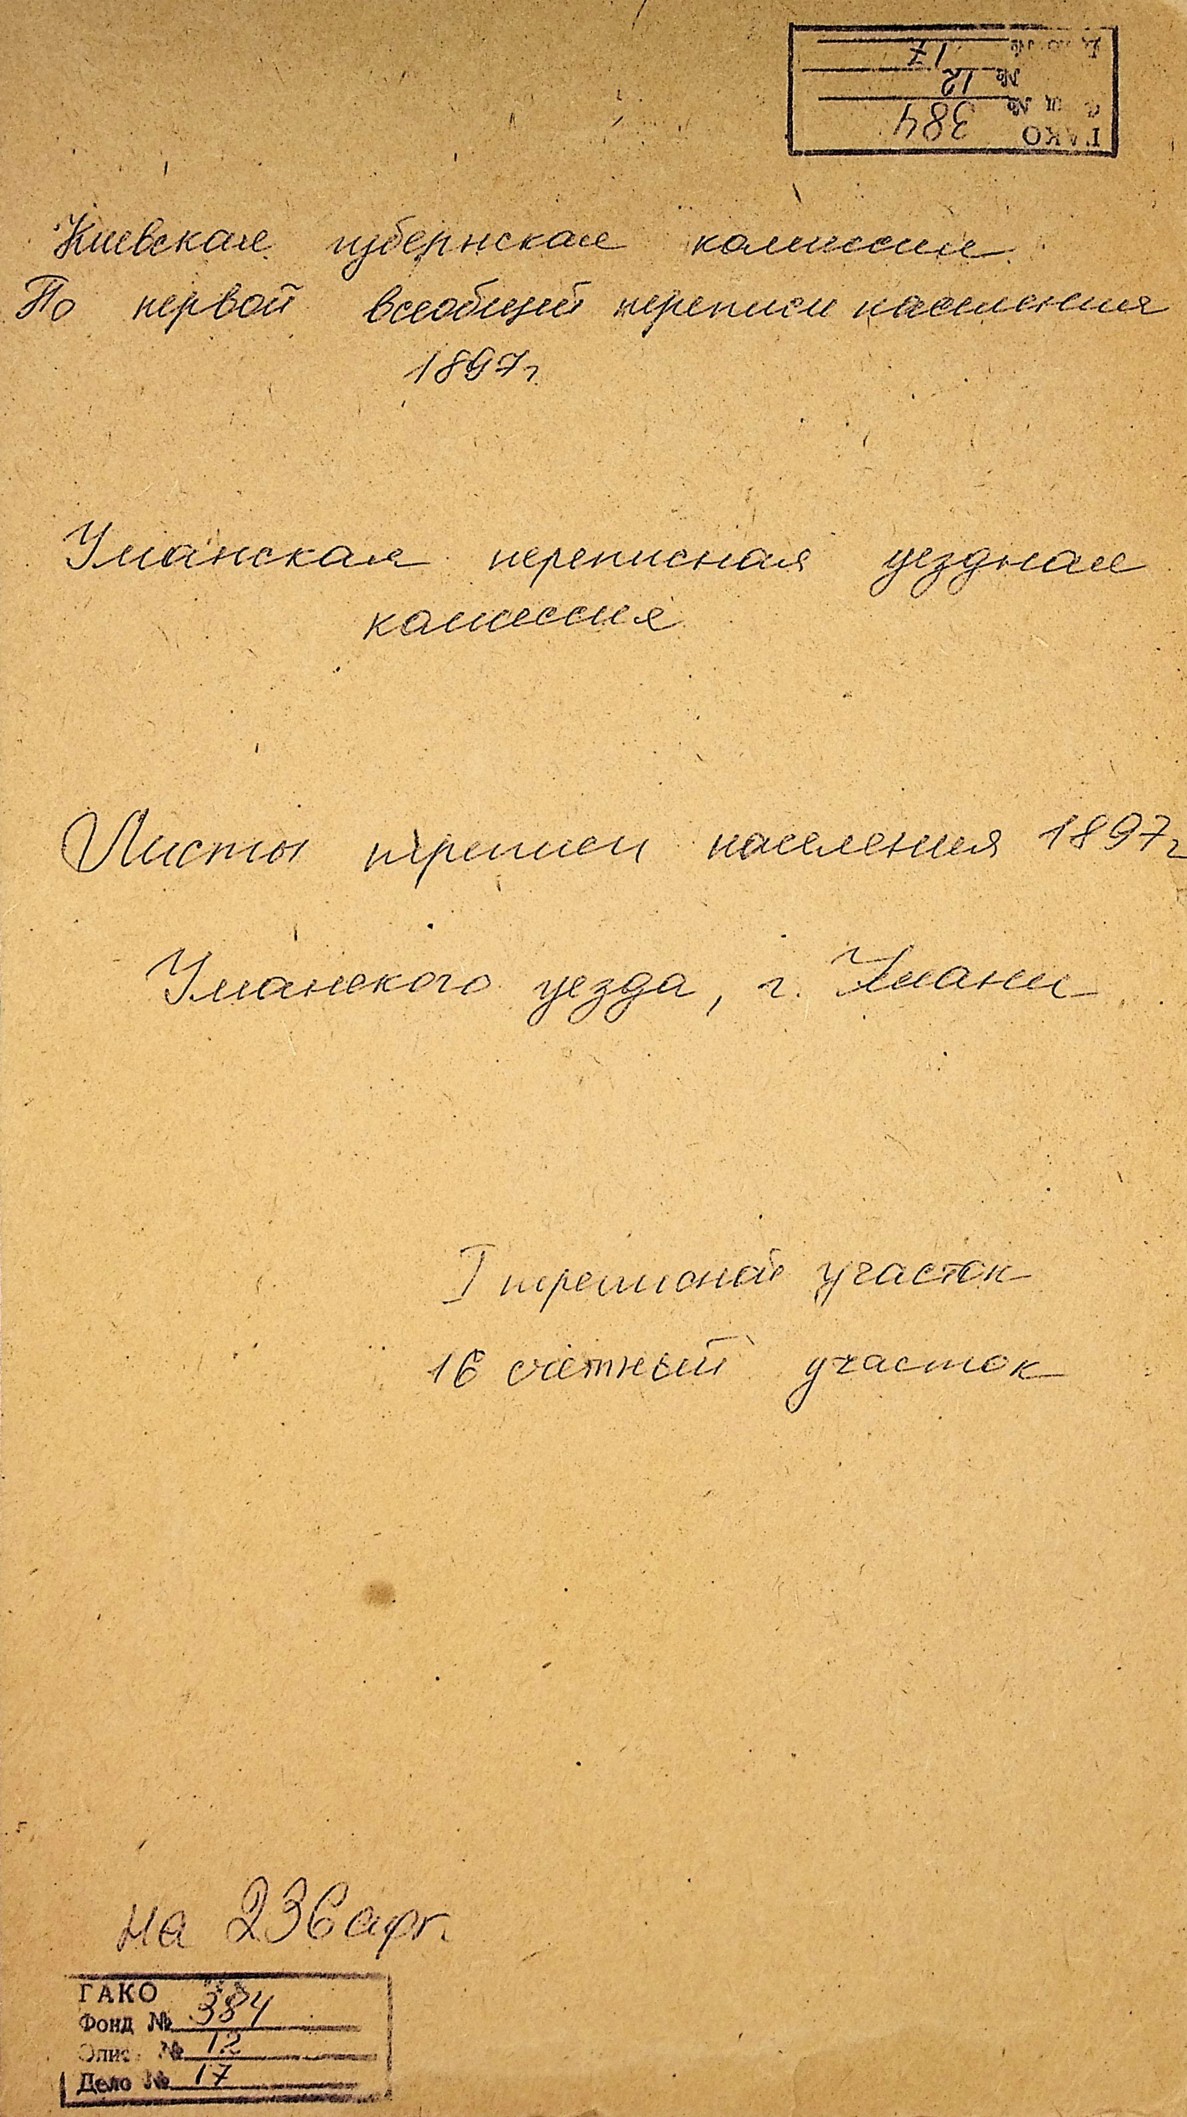 ГАКО
Фонд № 384
№ 12
Дело № 17
Киевская губернская комиссия
По первой всеобщей переписи населения
1897г
Уманская переписная уездная
комиссия
Листы переписи населения 1897г
Уманского уезда, г. Умани
I переписной участок
16 счетный участок
на 236 арк.
ГАКО
Фонд № 384
Опис. № 12
Дело № 17